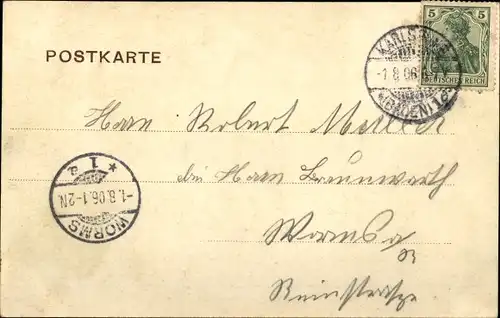 POSTKARTE
5 5
DEUTSCHES REICH
KARLSRUHE
-1.8.06.
(BADEN) 1a
Herrn Robert Müller
bei Herrn Braunwarth
Worms a/R
Rheinstrasse
* 1 e
-1.8.06.1-2N.
WORMS